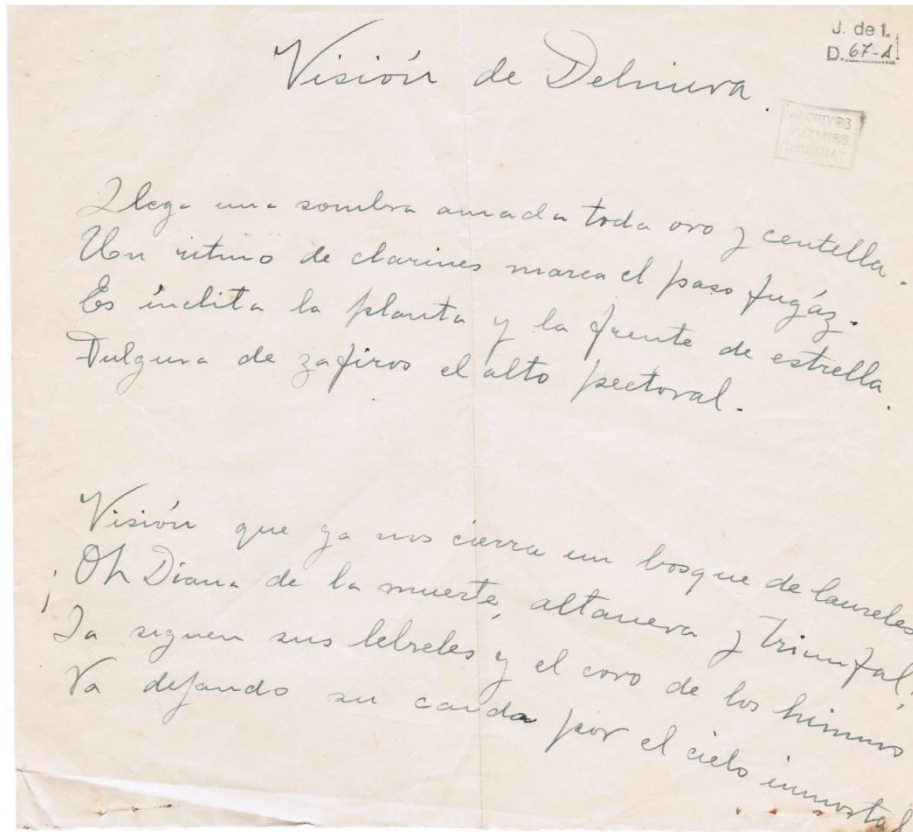 J. de I.
D. 67-A
Visión de Delmira.
ARCHIVOS
LITERARIOS
URUGUAY
Llega una sombra amada toda oro y centella.
Un ritmo de clarines marca el paso fugáz.
Es ínclita la planta y la frente de estrella.
Fulgura de zafiros el alto pectoral.
Visión que ya nos cierra un bosque de laureles
¡Oh Diana de la muerte, altanera y triunfal!
Ia siguen sus lebreles y el coro de los himnos
Va dejando su cauda por el cielo inmortal